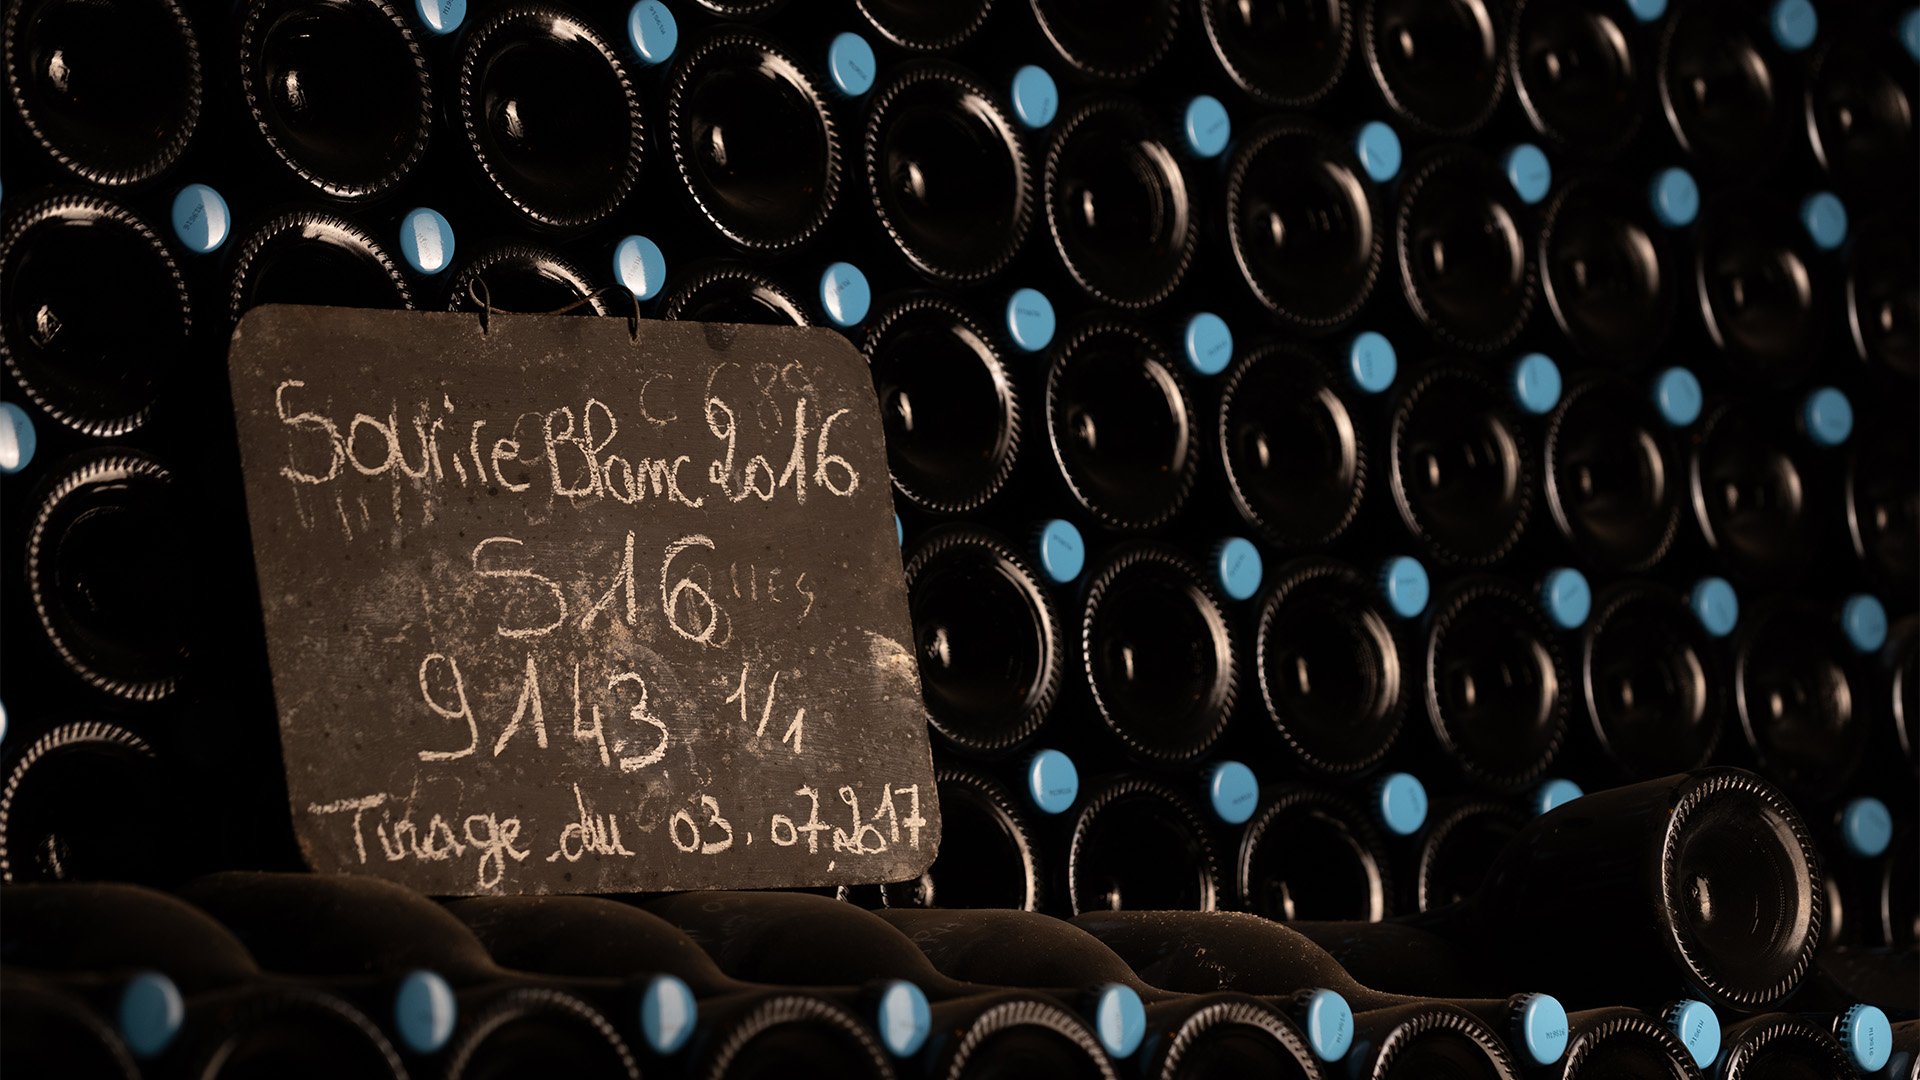 Sourire Blanc 2016
S16
9143 1/1
Tirage du 03.07.2017